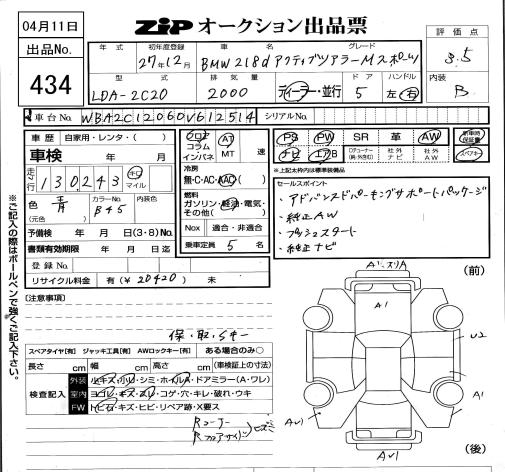 04月11日
ZIP オークション出品票
出品No.
434
評価点
3.5
内装
B
年式 初年度登録 車名 グレード
27年12月 BMW218d アクティブツアラーMスポーツ
型式 排気量 ドア ハンドル
LDA-2C20 2000 ディーラー・並行 5 左・右
車台No. WBA2C12060V612514 シリアルNo.
車歴 自家用・レンタ・( )
車検 年 月
走行 130243 キロ マイル
色 青 (元色) カラーNo. B45 内装色
予備検 年 月 日(3・8)No.
書類有効期限 年 月 日迄
登録No.
リサイクル料金 有(¥20420) 未
フロア コラム インパネ AT MT 速
冷房 無・C・AC・AAC
燃料 ガソリン・軽油・電気・その他( )
Nox 適合・非適合
乗車定員 5 名
PS PW SR 革 AW
ナビ エアB 社外ナビ 社外AW
新車時保証書
スペアキー
※上記太枠内は標準装備品
セールスポイント
・アドバンスドパーキングサポートパッケージ
・純正AW
・プッシュスタート
・純正ナビ
※ご記入の際はボールペンで強くご記入下さい。
[注意事項]
保・取・Sキー
スペアタイヤ[有] ジャッキ工具[有] AWロックキー[有] ある場合のみ○
長さ cm 幅 cm 高さ cm (車検証上の寸法)
検査記入
外装 小キズ・小凹・シミ・ホイルA・ドアミラー(A・ワレ)
室内 ヨゴレ・キズ・スレ・コゲ・穴・キレ・破れ・ウキ
FW トビ石・キズ・ヒビ・リペア跡・X要ス
Rコーナー
Rフロアサイドヒズミ
(前)
A1・スリA
A1
U2
A1
AU1
AU1
(後)